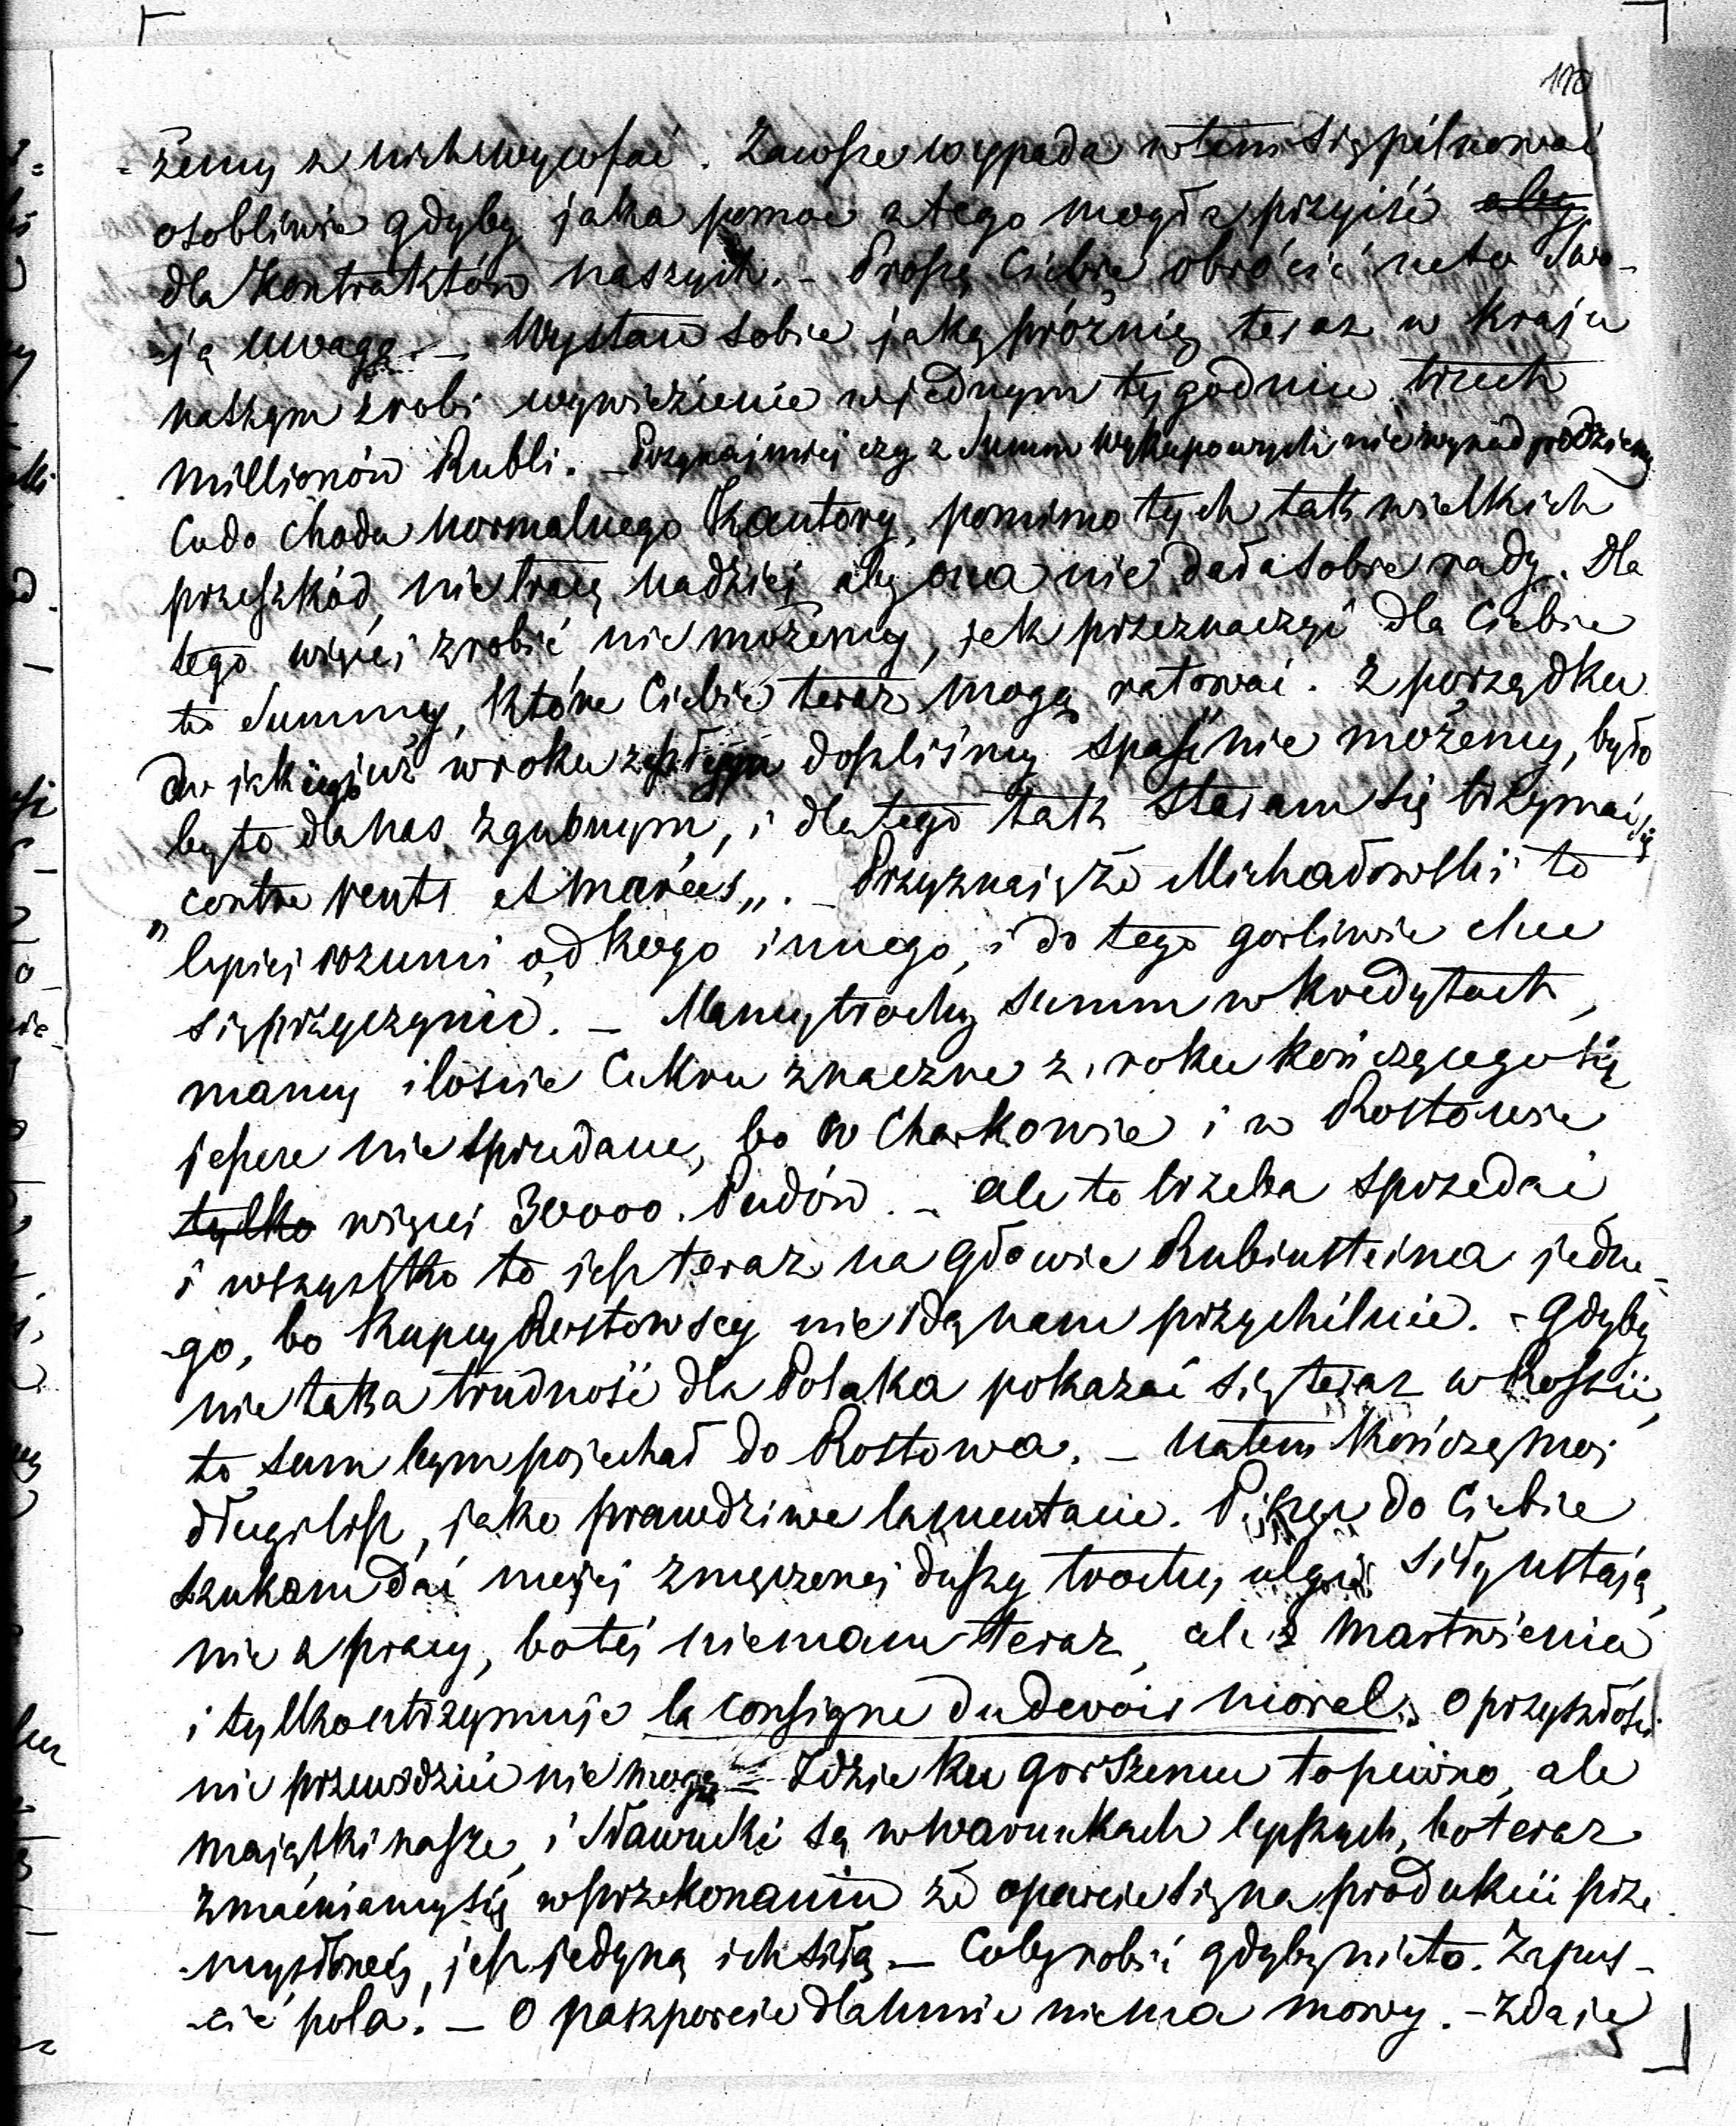 -żemy z nich wycofać. Zawsze wypada w tem się pilnować
osobliwie gdyby jaka pomoc z tego mogła przyjść ~~aby~~
dla Kontraktów naszych. – Proszę Ciebie obrócić na to Two-
-ją uwagę. – Wystaw sobie jaką próżnię teraz w Kraju
naszym zrobi wywiezienie w jednym tygodniu trzech
millionów Rubli. – Przynajmniej czy z Summ wykupowych nie
Co do chodu normalnego Kantory, pomimo tych tak wielkich
przeszkód, nie tracę nadziei aby ona nie dała sobie rady. Dla
tego więcej zrobić nie możemy, jak przeznaczyć dla Ciebie
te Summy, które Ciebie teraz mogą ratować. Z porządku
do jakiego już w roku zeszłym doszliśmy spaść nie możemy, było
by to dla nas zgubnym, i dla tego tak staram się trzymać się
„contre vents et marées„. – Przyznaję że Michałowski to
lepiej rozumi od kogo innego, i do tego gorliwie chce
się przyczynić. – Mamy trochę summ w kredytach,
mamy iloście Cukru znaczne z roku kończącego się
jeszcze nie sprzedane, bo w Charkowie i w Rostowie
~~tylko~~ więcej 30000. Pudów. – ale to trzeba sprzedać
i wszystko to jest teraz na głowie Rubinsteina jedne-
-go, bo Kupcy Rostowscy nie idą nam przychilnie. – Gdyby
nie taka trudność dla Polaka pokazać się teraz w Rossii,
to sam bym pojechał do Rostowa. – Na tem kończę mój
długi list, jako prawdziwe lamentacie. Piszę do Ciebie
szukam dać mojej zmęczonej duszy trochę ulgi. Siły ustają,
nie z pracy, bo tej nie mam teraz, ale z martwienia
i tylko utrzymuje la consigne du devoir moral. O przyszłości
nic przewidzieć nie mogę – Idzie ku gorszemu to pewno, ale
majątki nasze, i Sławucki są w warunkach lepszych, bo teraz
zmacniamy się w przekonaniu że oparcie się na produkcii prze
-mysłowej, jest jedyną ich siłą. – Co by robić gdyby nie to. Zapus-
-cić pola! – O paszporcie dla mnie nie ma mowy. – Zdaje